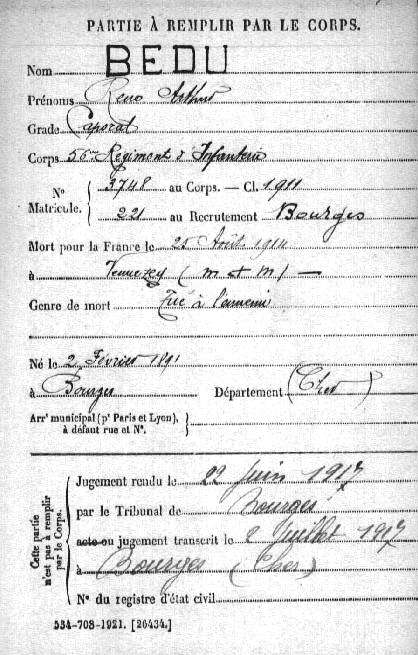 PARTIE À REMPLIR PAR LE CORPS.
Nom BEDU
Prénoms René Arthur
Grade Caporal
Corps 55me Régiment d'Infanterie
N° Matricule. 3748 au Corps. — Cl. 1911
221 au Recrutement Bourges
Mort pour la France le 25 Août 1914
à (M et M) —
Genre de mort Tué à l'ennemi
Né le 2 Février 1891
à Bourges Département (Cher)
Arrt municipal (pr Paris et Lyon), à défaut rue et N°.
Cette partie n'est pas à remplir par le Corps.
Jugement rendu le 22 Juin 1917
par le Tribunal de Bourges
acte ou jugement transcrit le 2 Juillet 1917
à Bourges (Cher)
N° du registre d'état civil
534-708-1921. [26434.]